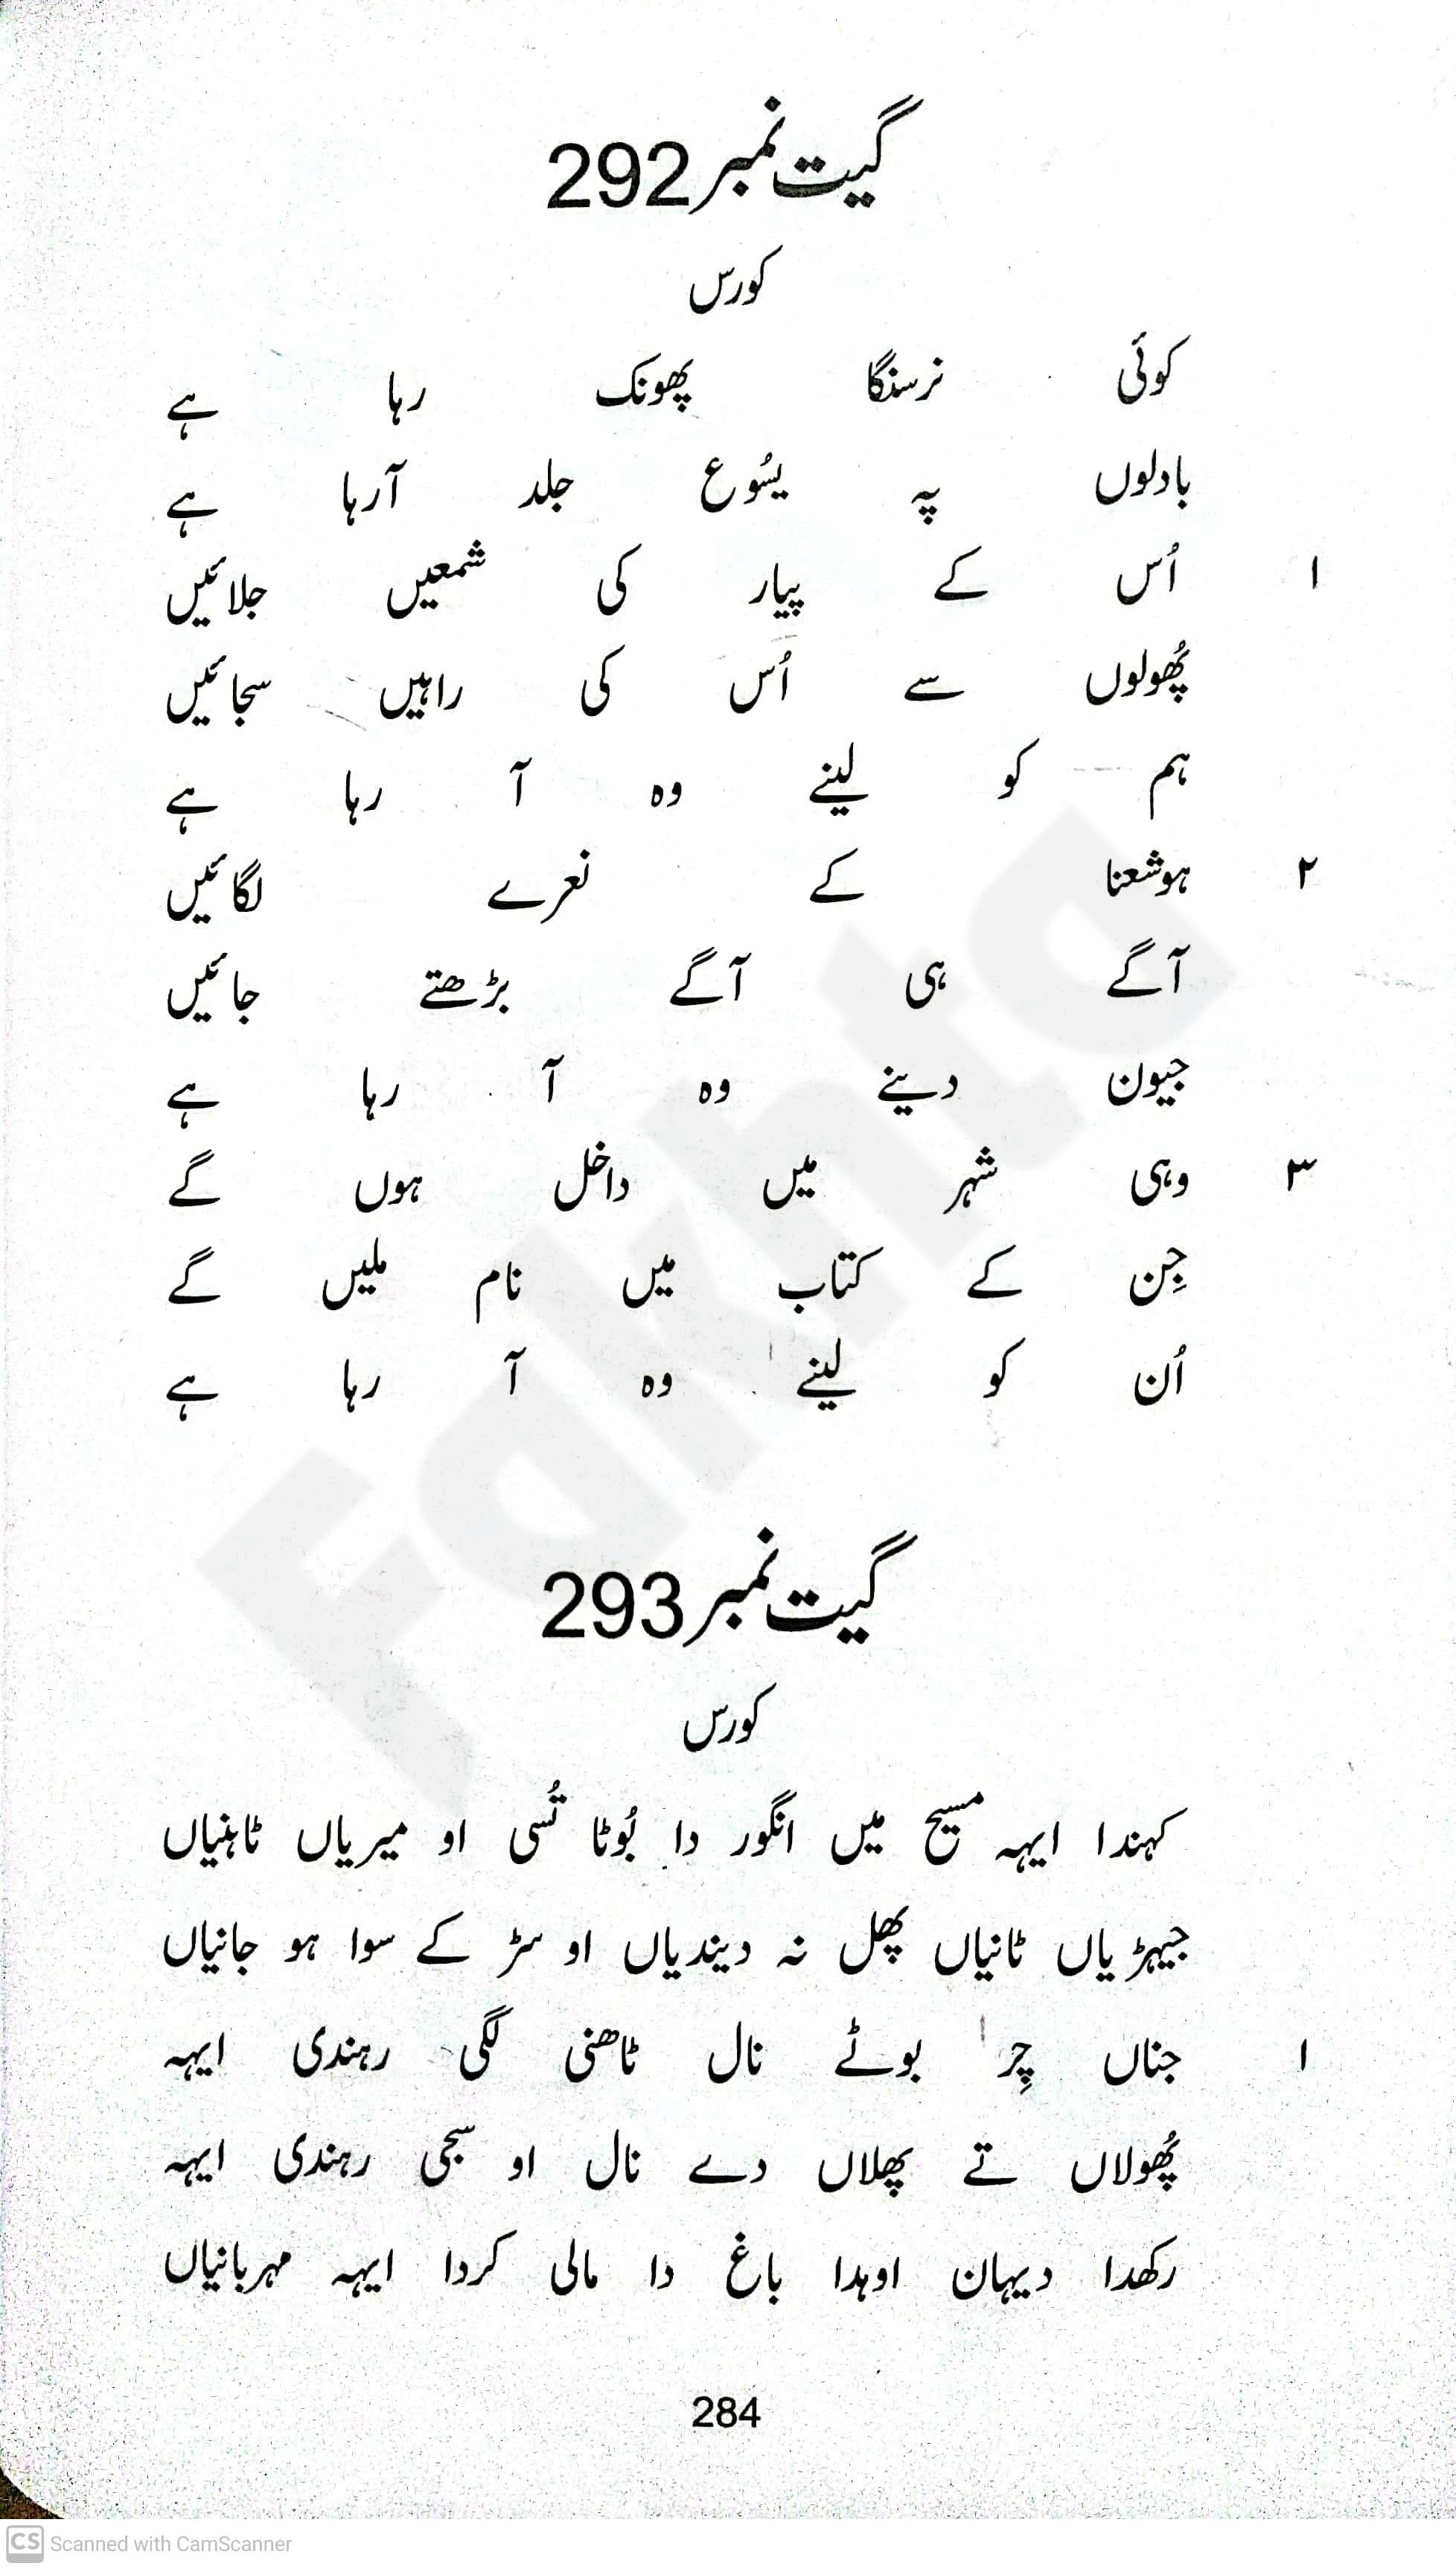 گیت نمبر 292
کورس
کوئی نرسنگا پھونک رہا ہے
بادلوں پہ یسُوع جلد آرہا ہے
۱ اُس کے پیار کی شمعیں جلائیں
پُھولوں سے اُس کی راہیں سجائیں
ہم کو لینے وہ آ رہا ہے
۲ ہوشعنا کے نعرے لگائیں
آگے ہی آگے بڑھتے جائیں
جیون دینے وہ آ رہا ہے
۳ وہی شہر میں داخل ہوں گے
جِن کے کتاب میں نام ملیں گے
اُن کو لینے وہ آ رہا ہے
گیت نمبر 293
کورس
کہندا ایہہ مسیح میں انگور دا بُوٹا تُسی او میریاں ٹاہنیاں
جیہڑیاں ٹانیاں پھل نہ دیندیاں او سڑ کے سوا ہو جانیاں
۱ جناں چِر بوٹے نال ٹاھنی لگی رہندی ایہہ
پُھولاں تے پھلاں دے نال او سجی رہندی ایہہ
رکھدا دیہان اوہدا باغ دا مالی کردا ایہہ مہربانیاں
284
Fakhta
CS Scanned with CamScanner